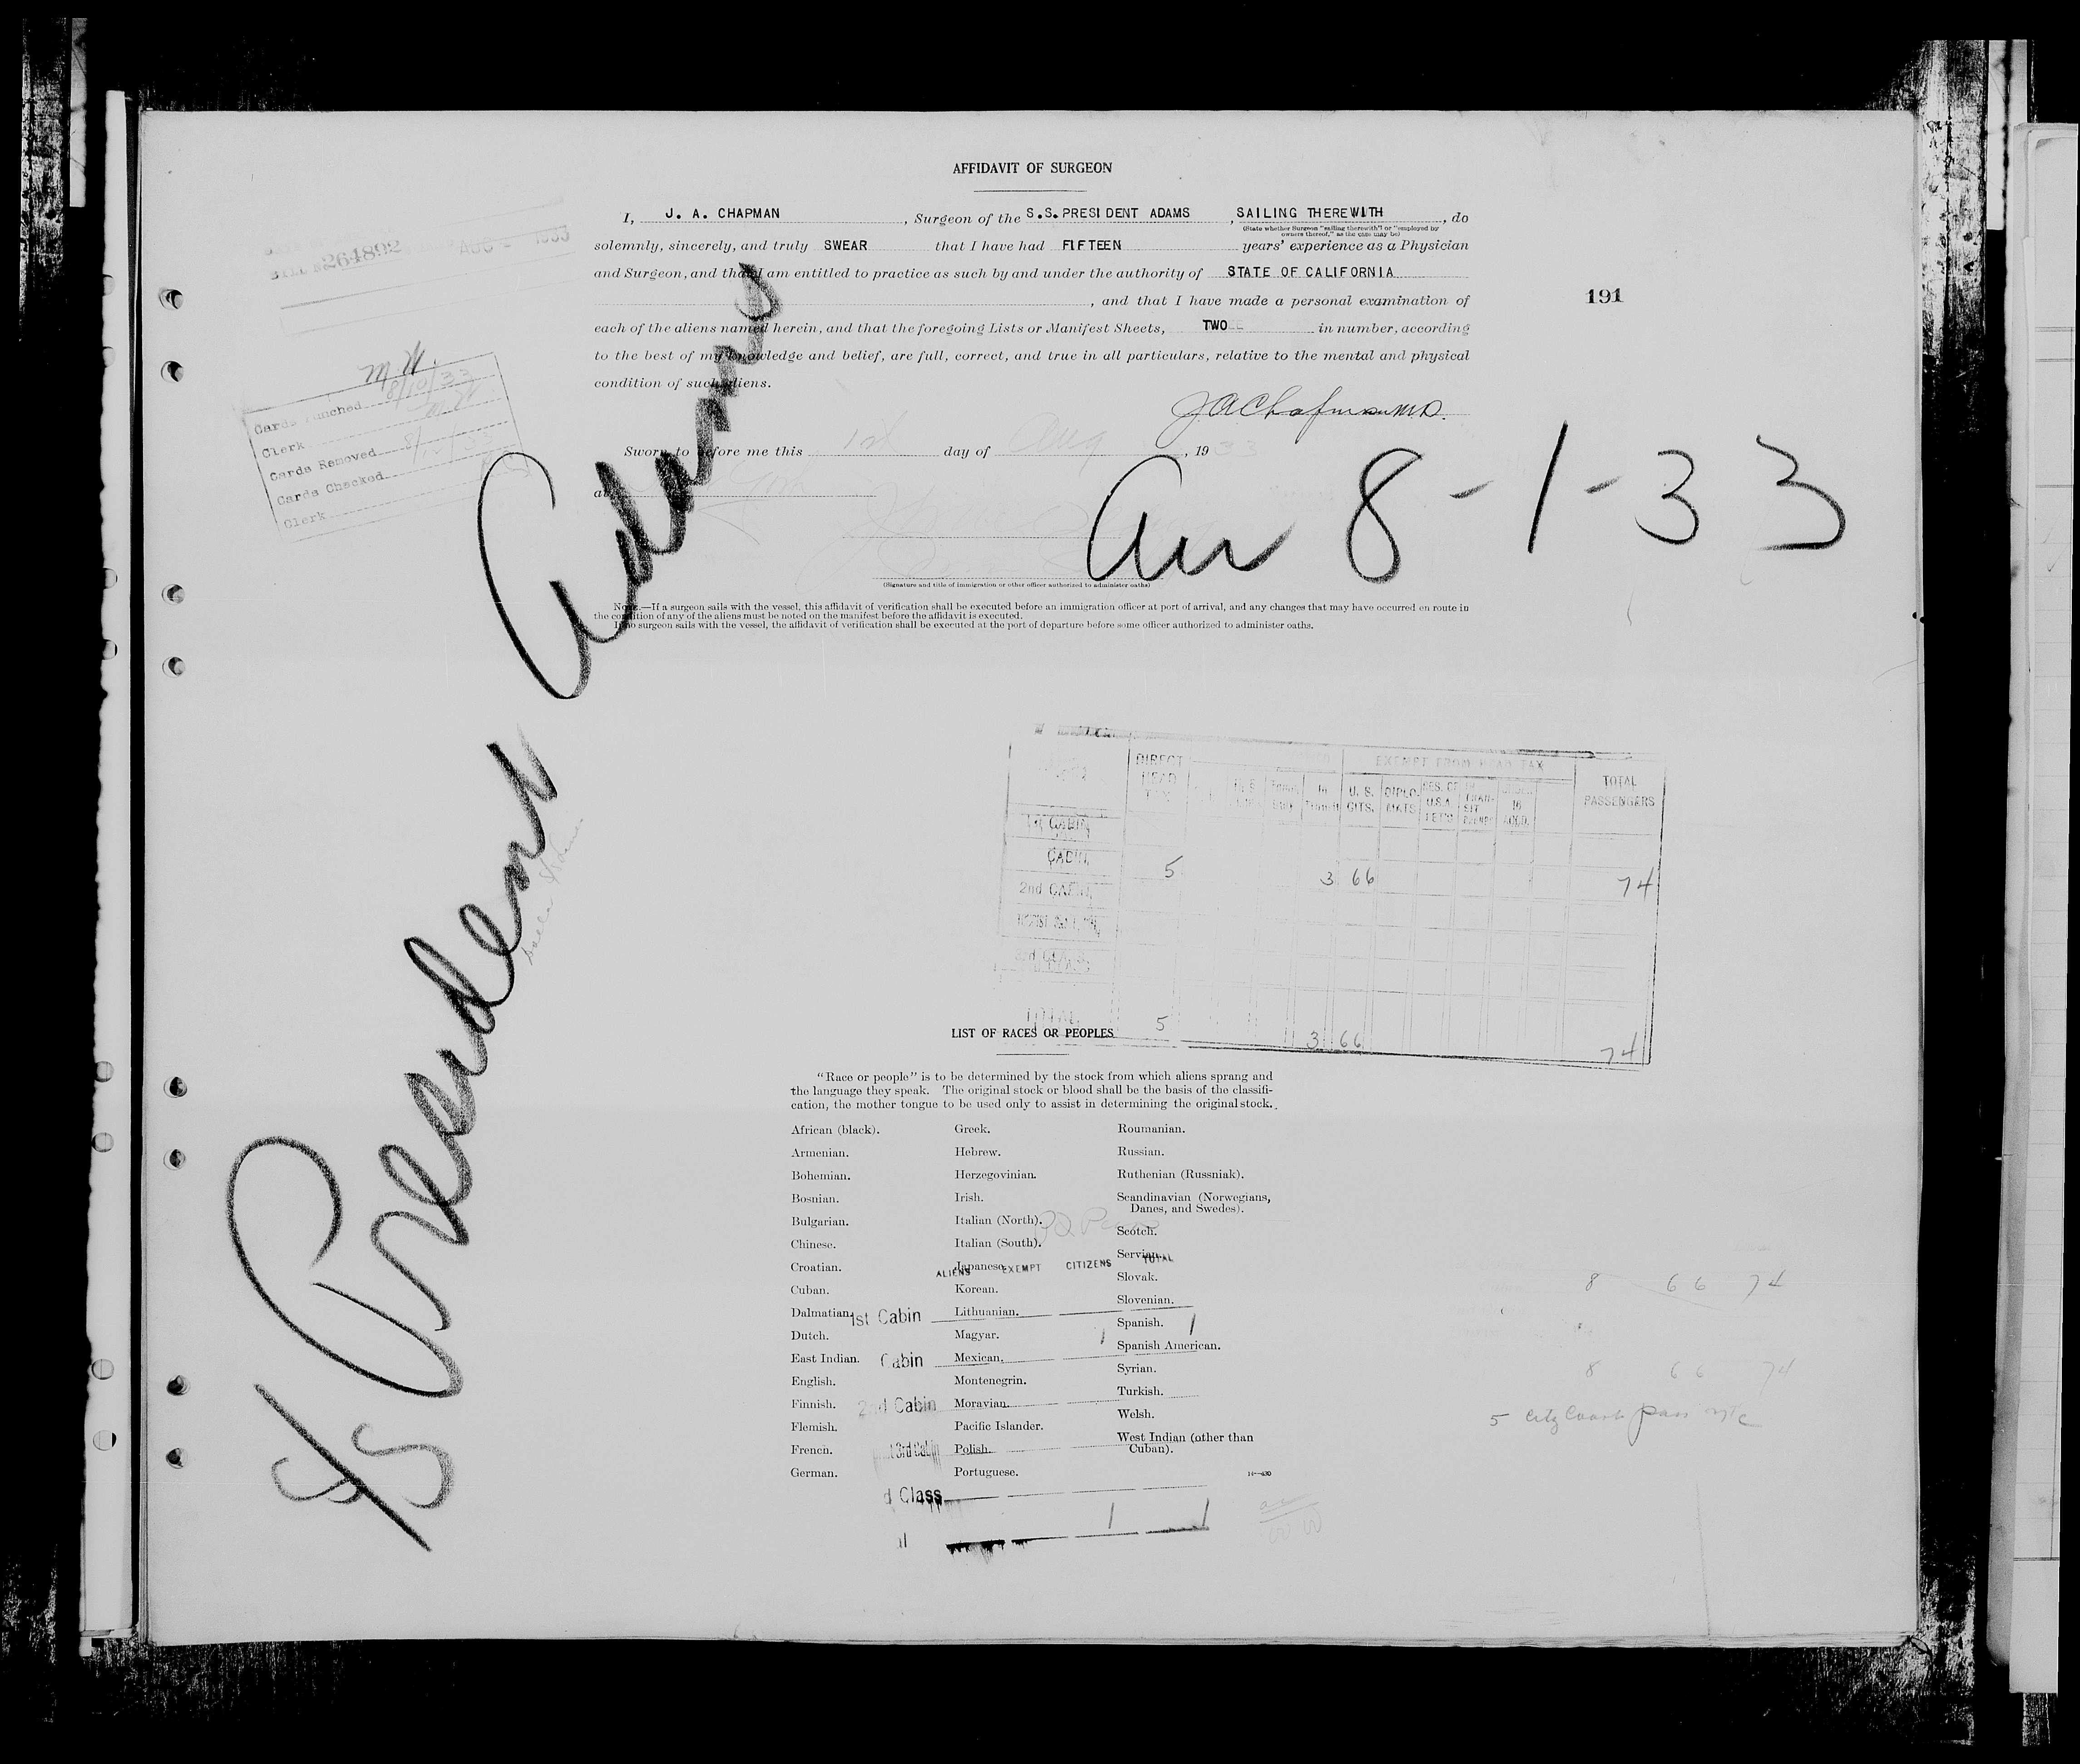 AFFIDAVIT OF SURGEON
I, J. A. CHAPMAN, Surgeon of the S.S. PRESIDENT ADAMS, SAILING THEREWITH, do
(State whether Surgeon "sailing therewith" or "employed by
owners thereof," as the case may be)
solemnly, sincerely, and truly SWEAR that I have had FIFTEEN years' experience as a Physician
and Surgeon, and that I am entitled to practice as such by and under the authority of STATE OF CALIFORNIA
, and that I have made a personal examination of
each of the aliens named herein, and that the foregoing Lists or Manifest Sheets, TWO in number, according
to the best of my knowledge and belief, are full, correct, and true in all particulars, relative to the mental and physical
condition of such aliens.
J A Chapman M.D.
Sworn to before me this 1st day of Aug, 1933
at
(Signature and title of immigration or other officer authorized to administer oaths)
NOTE.—If a surgeon sails with the vessel, this affidavit of verification shall be executed before an immigration officer at port of arrival, and any changes that may have occurred en route in
the condition of any of the aliens must be noted on the manifest before the affidavit is executed.
If no surgeon sails with the vessel, the affidavit of verification shall be executed at the port of departure before some officer authorized to administer oaths.
191
264892 AUG 1933
M.W.
Cards Punched 8/10/33
Clerk
Cards Removed 8/12/33
Cards Checked
Clerk
Arr 8-1-33
SS President Adams
DIRECT HEAD TAX
In Transit
EXEMPT FROM HEAD TAX
U. S. CITS.
DIPLO-MATS
TOTAL PASSENGERS
1st CABIN
CABIN 5 3 66 74
2nd CABIN
TOTAL 5 3 66 74
LIST OF RACES OR PEOPLES
"Race or people" is to be determined by the stock from which aliens sprang and
the language they speak. The original stock or blood shall be the basis of the classifi-
cation, the mother tongue to be used only to assist in determining the original stock.
African (black).
Armenian.
Bohemian.
Bosnian.
Bulgarian.
Chinese.
Croatian.
Cuban.
Dalmatian.
Dutch.
East Indian.
English.
Finnish.
Flemish.
French.
German.
Greek.
Hebrew.
Herzegovinian.
Irish.
Italian (North).
Italian (South).
Japanese.
Korean.
Lithuanian.
Magyar.
Mexican.
Montenegrin.
Moravian.
Pacific Islander.
Polish.
Portuguese.
Roumanian.
Russian.
Ruthenian (Russniak).
Scandinavian (Norwegians,
Danes, and Swedes).
Scotch.
Servian.
Slovak.
Slovenian.
Spanish.
Spanish American.
Syrian.
Turkish.
Welsh.
West Indian (other than
Cuban).
ALIENS EXEMPT CITIZENS TOTAL
1st Cabin
Cabin 1 1
2nd Cabin
3rd Cabin
d Class
al 1 1
8 66 74
8 66 74
5